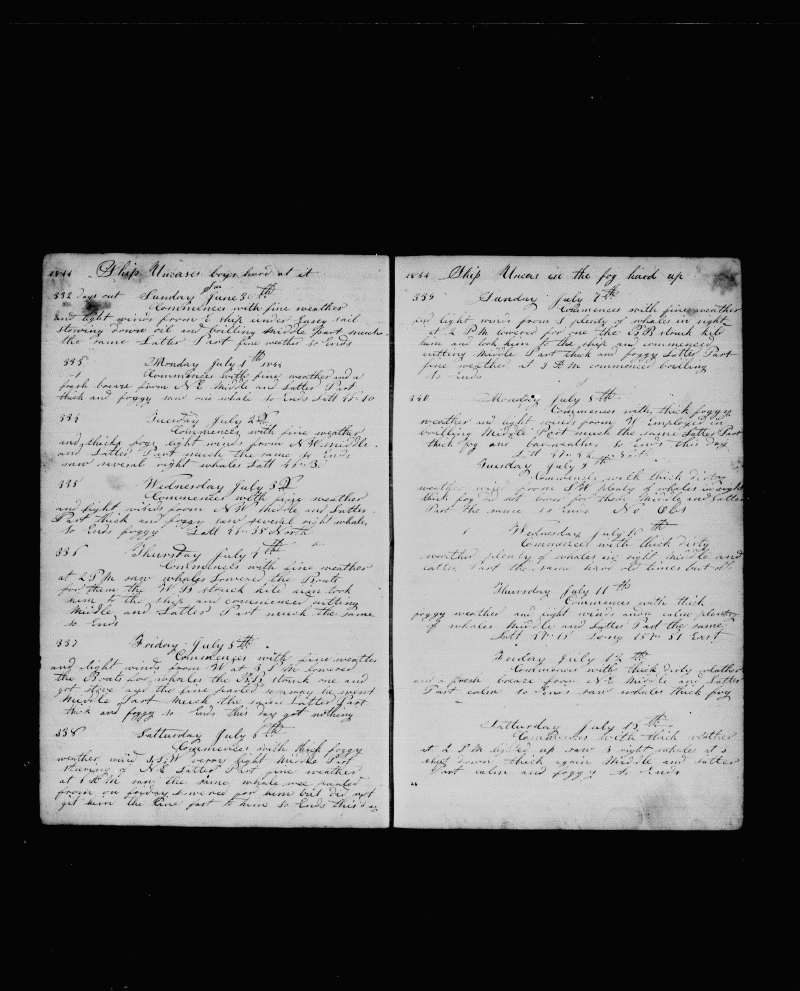 1844 Ship Uncases boys hard at it
332 days out Sunday June 30th
Commences with fine weather
and light winds from E ship under Easey sail
stowing down oil and boiling Middle part much
the same Latter Part fine wether So Ends
333 Monday July 1th 1844
Commences with fine weather and a
fresh breaze from N E Middle and Latter Part
thick and foggy saw one whale So Ends Latt
334 Tuesday July 2d
Commences with fine weather
and thick fogg light winds from N W middle
and Latter Part much the same So Ends
saw several right whales Latt
335 Wednesday July 3d
Commences with fine weather
and light winds from N W Middle and Latter
Part thick and foggy saw several right whales
So Ends foggy Latt 35 North
336 Thursday July 4th
Commences with fine weather
at 2 P M saw whales Lowered the Boats
for them the W B struck kild and took
him to the ship and commenced cutting
Middle and Latter Part much the same
So Ends
337 Friday July 5th
Commences with fine weather
and light winds from W at 3 P M lowered
the Boats for whales the B B struck one and
got stove and the line parted away he went
Middle Part much the same Latter Part
thick and foggy So Ends this day got nothing
338 Saturday July 6th
Commences with thick foggy
weather wind S S W verry light Middle Part
N E Latter Part fine weather
at M saw the same whale wee parted
from on friday Lowered for him but did not
git him the Line fast to him So Ends this day
1844 Ship Uncas in the fog hard up
339 Sunday July 7th
Commences with fine weather
and light winds from S plenty of whales in sight
at 2 P M lowered for one the B B struck kild
him and took him to the ship and commenced
cutting Middle Part thick and foggy Latter Part
fine weather at 3 P M commenced boiling
So Ends
340 Monday July 8th
Commences with thick foggy
weather and light winds from W Employed in
boiling Middle Part much the same Latter Part
thick fog and So Ends this day
Latt
Tuesday July 9th
Commences with thick dirty
weather wind from S W plenty of whales in sight
thick fog did not lower for them Middle and Latter
Part the same so ends No Obs
Wednesday July 10th
Commences with thick dirty
weather plenty of whales in sight Middle and
latter Part the same hard old times but
Thursday July 11th
Commences with thick
foggy weather and light winds and calm plenty
of whales Middle and Latter Part the same
Latt 15 Long East
Friday July 12th
Commences with thick dirty weather
and a fresh breeze from N E Middle and Latter
Part calm So Ends saw whales thick fog
Satturday July 13th
Commences with thick weather
at 2 P M lighted up saw 3 right whales at 3
shut down thick again Middle and Latter
Part calm and foggy So Ends